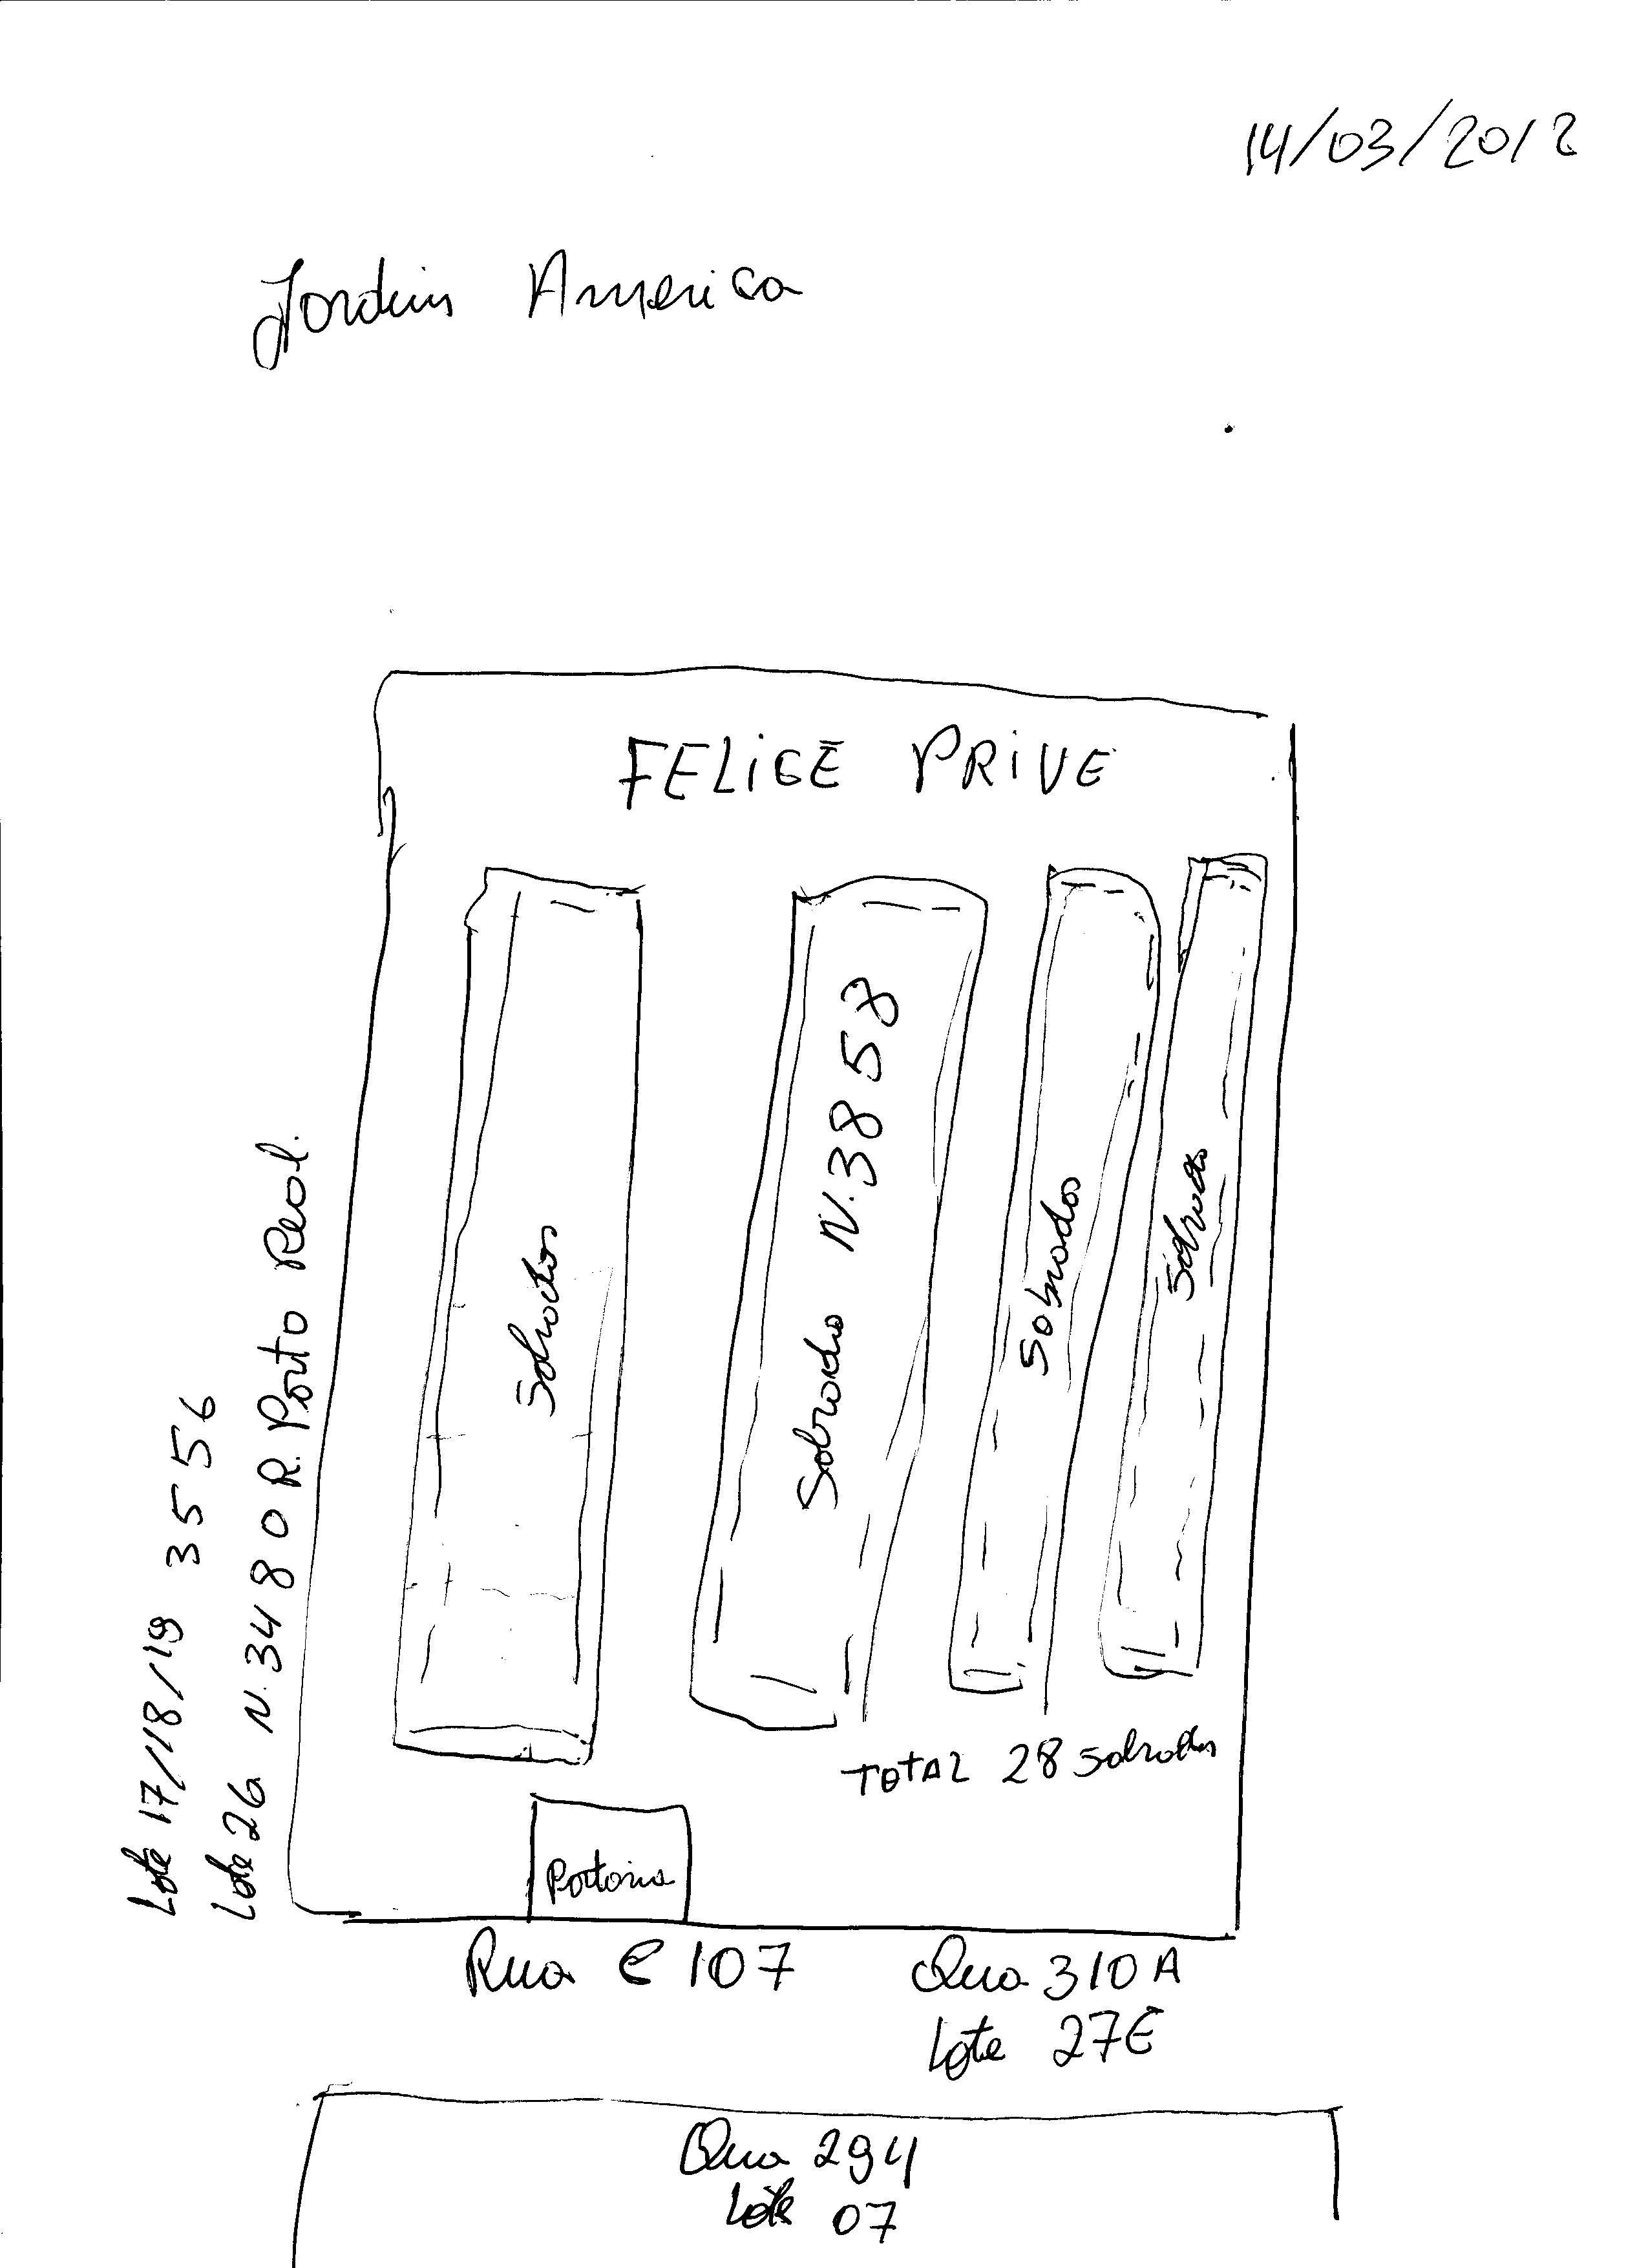 14/03/2012
Jardim America
FELICE PRIVE
Sobrados
Sobrado N.3858
Sobrados
Sobrados
TOTAL 28 Sobrados
Portaria
Lote 17/18/19 3556
Lote 26 N.3480 R. Porto Real.
Rua C 107
Qua 310 A
Lote 27E
Qua 294
Lote 07